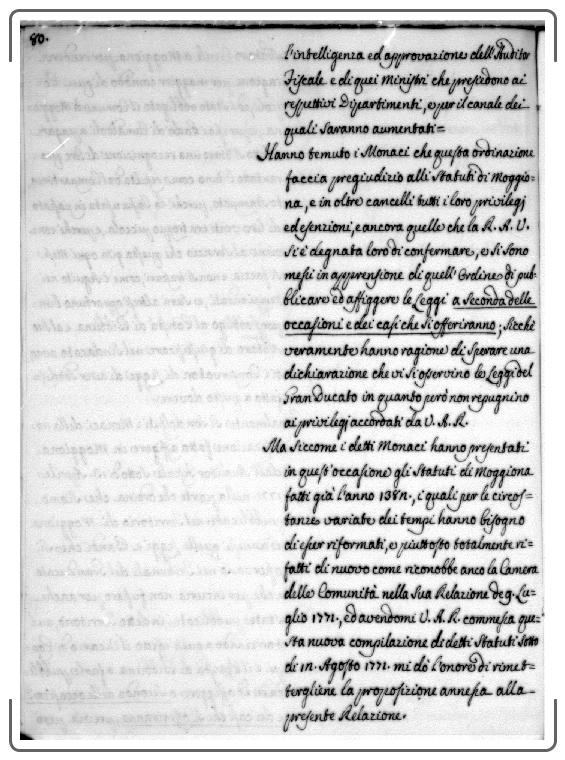 80.
l'intelligenza ed approvazione dell'Auditor
Fiscale e di quei Ministri che presiedono ai
respettivi Dipartimenti, e per il canale dei
quali saranno aumentati=
Hanno temuto i Monaci che questa ordinazione
faccia pregiudizio alli Statuti di Moggio=
na, e in oltre cancelli tutti i loro privilegj
ed esenzioni, e ancora quelle che la R. A. V.
si è degnata loro di confermare, e si sono
mesi in apprensione di quell'Ordine di pub=
blicare ed affiggere le Leggi a seconda delle
occasioni e dei casi che si offeriranno; sicchè
veramente hanno ragione di sperare una
dichiarazione che vi si osservino le Leggi del
Gran Ducato in quanto però non repugnino
ai privilegj accordati da V. A. R.
Ma siccome i detti Monaci hanno presentati
in quest'occasione gli Statuti di Moggiona
fatti già l'anno 1382., i quali per le circos=
tanze variate dei tempi hanno bisogno
di esser riformati, e piuttosto totalmente ri=
fatti di nuovo come riconobbe anco la Camera
delle Comunità nella sua Relazione de 9. Lu=
glio 1771., ed avendomi V. A. R. commessa que=
sta nuova compilazione di detti Statuti sotto
di 12. Agosto 1771. mi dò l'onore di rimet=
tergliene la proposizione annessa alla
presente Relazione.